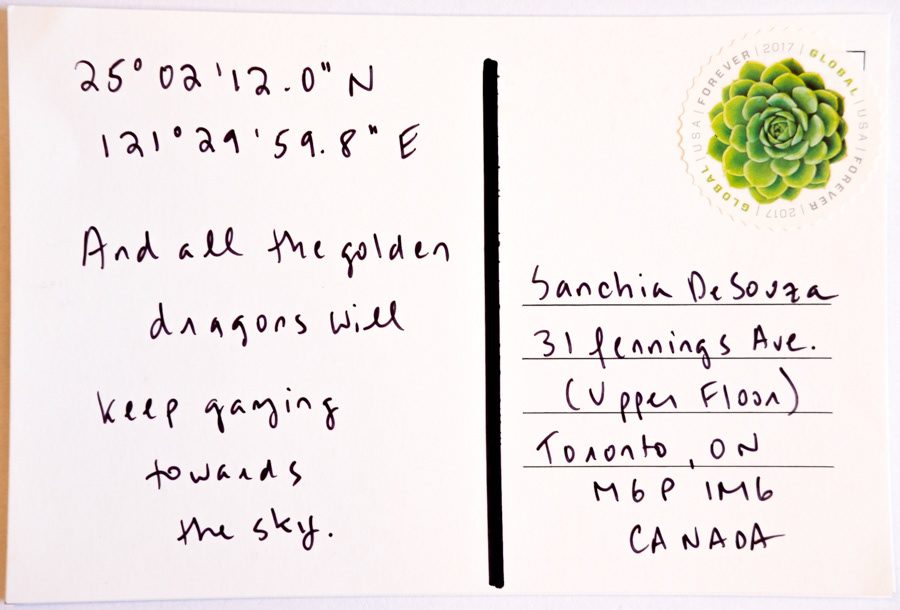 25° 02'12.0" N
121° 29'59.8" E
And all the golden
dragons will
keep gazing
towards
the sky.
GLOBAL | USA | FOREVER | 2017 | GLOBAL | USA | FOREVER | 2017 |
Sanchia DeSouza
31 Fennings Ave.
(Upper Floor)
Toronto, ON
M6P 1M6
CANADA